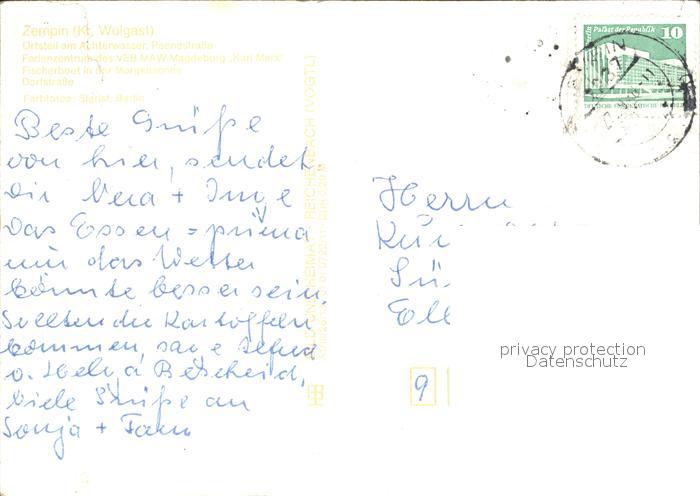 Zempin (Kr. Wolgast)
Ortsteil am Achterwasser, Peenestraße
Ferienzentrum des VEB MAW Magdeburg „Karl Marx"
Fischerboot in der Morgensonne
Dorfstraße
Farbfotos: Sigrist, Berlin
Beste Grüße
von hier, sendet
Dir Vera + Inge
Das Essen = prima
nur das Wetter
könnte besser sein.
Sollten die Kartoffeln
kommen, sage
u. Helga Bescheid,
viele Grüße an
Sonja + Fam
BILD UND HEIMAT REICHENBACH (VOGTL)
Palast der Republik 10
Herrn
Kur
Sü
Ell
9
privacy protection
Datenschutz